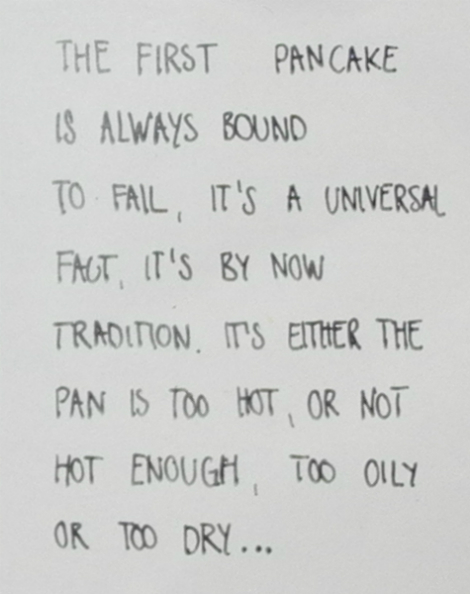 THE FIRST PANCAKE
IS ALWAYS BOUND
TO FAIL, IT'S A UNIVERSAL
FACT, IT'S BY NOW
TRADITION. IT'S EITHER THE
PAN IS TOO HOT, OR NOT
HOT ENOUGH, TOO OILY
OR TOO DRY...